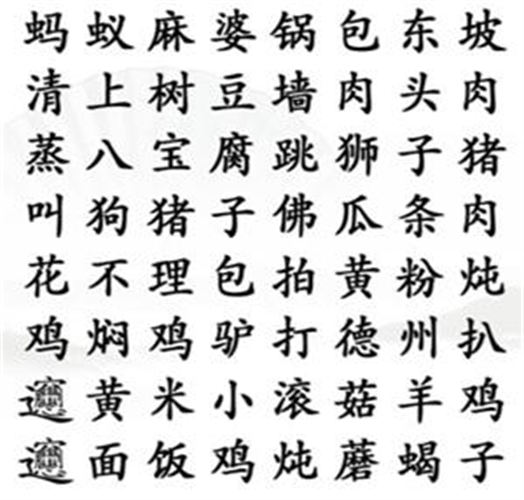 蚂蚁麻婆锅包东坡
清上树豆墙肉头肉
蒸八宝腐跳狮子猪
叫狗猪子佛瓜条肉
花不理包拍黄粉炖
鸡焖鸡驴打德州扒
𰻝黄米小滚菇羊鸡
𰻝面饭鸡炖蘑蝎子